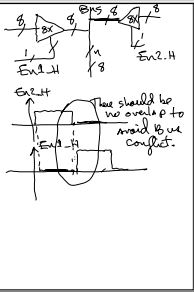 Bus
8
8
8
8
8x
8x
1
1
8
En1_H
En2_H
En2_H
There should be
no overlap to
avoid Bus
conflict.
En1_H